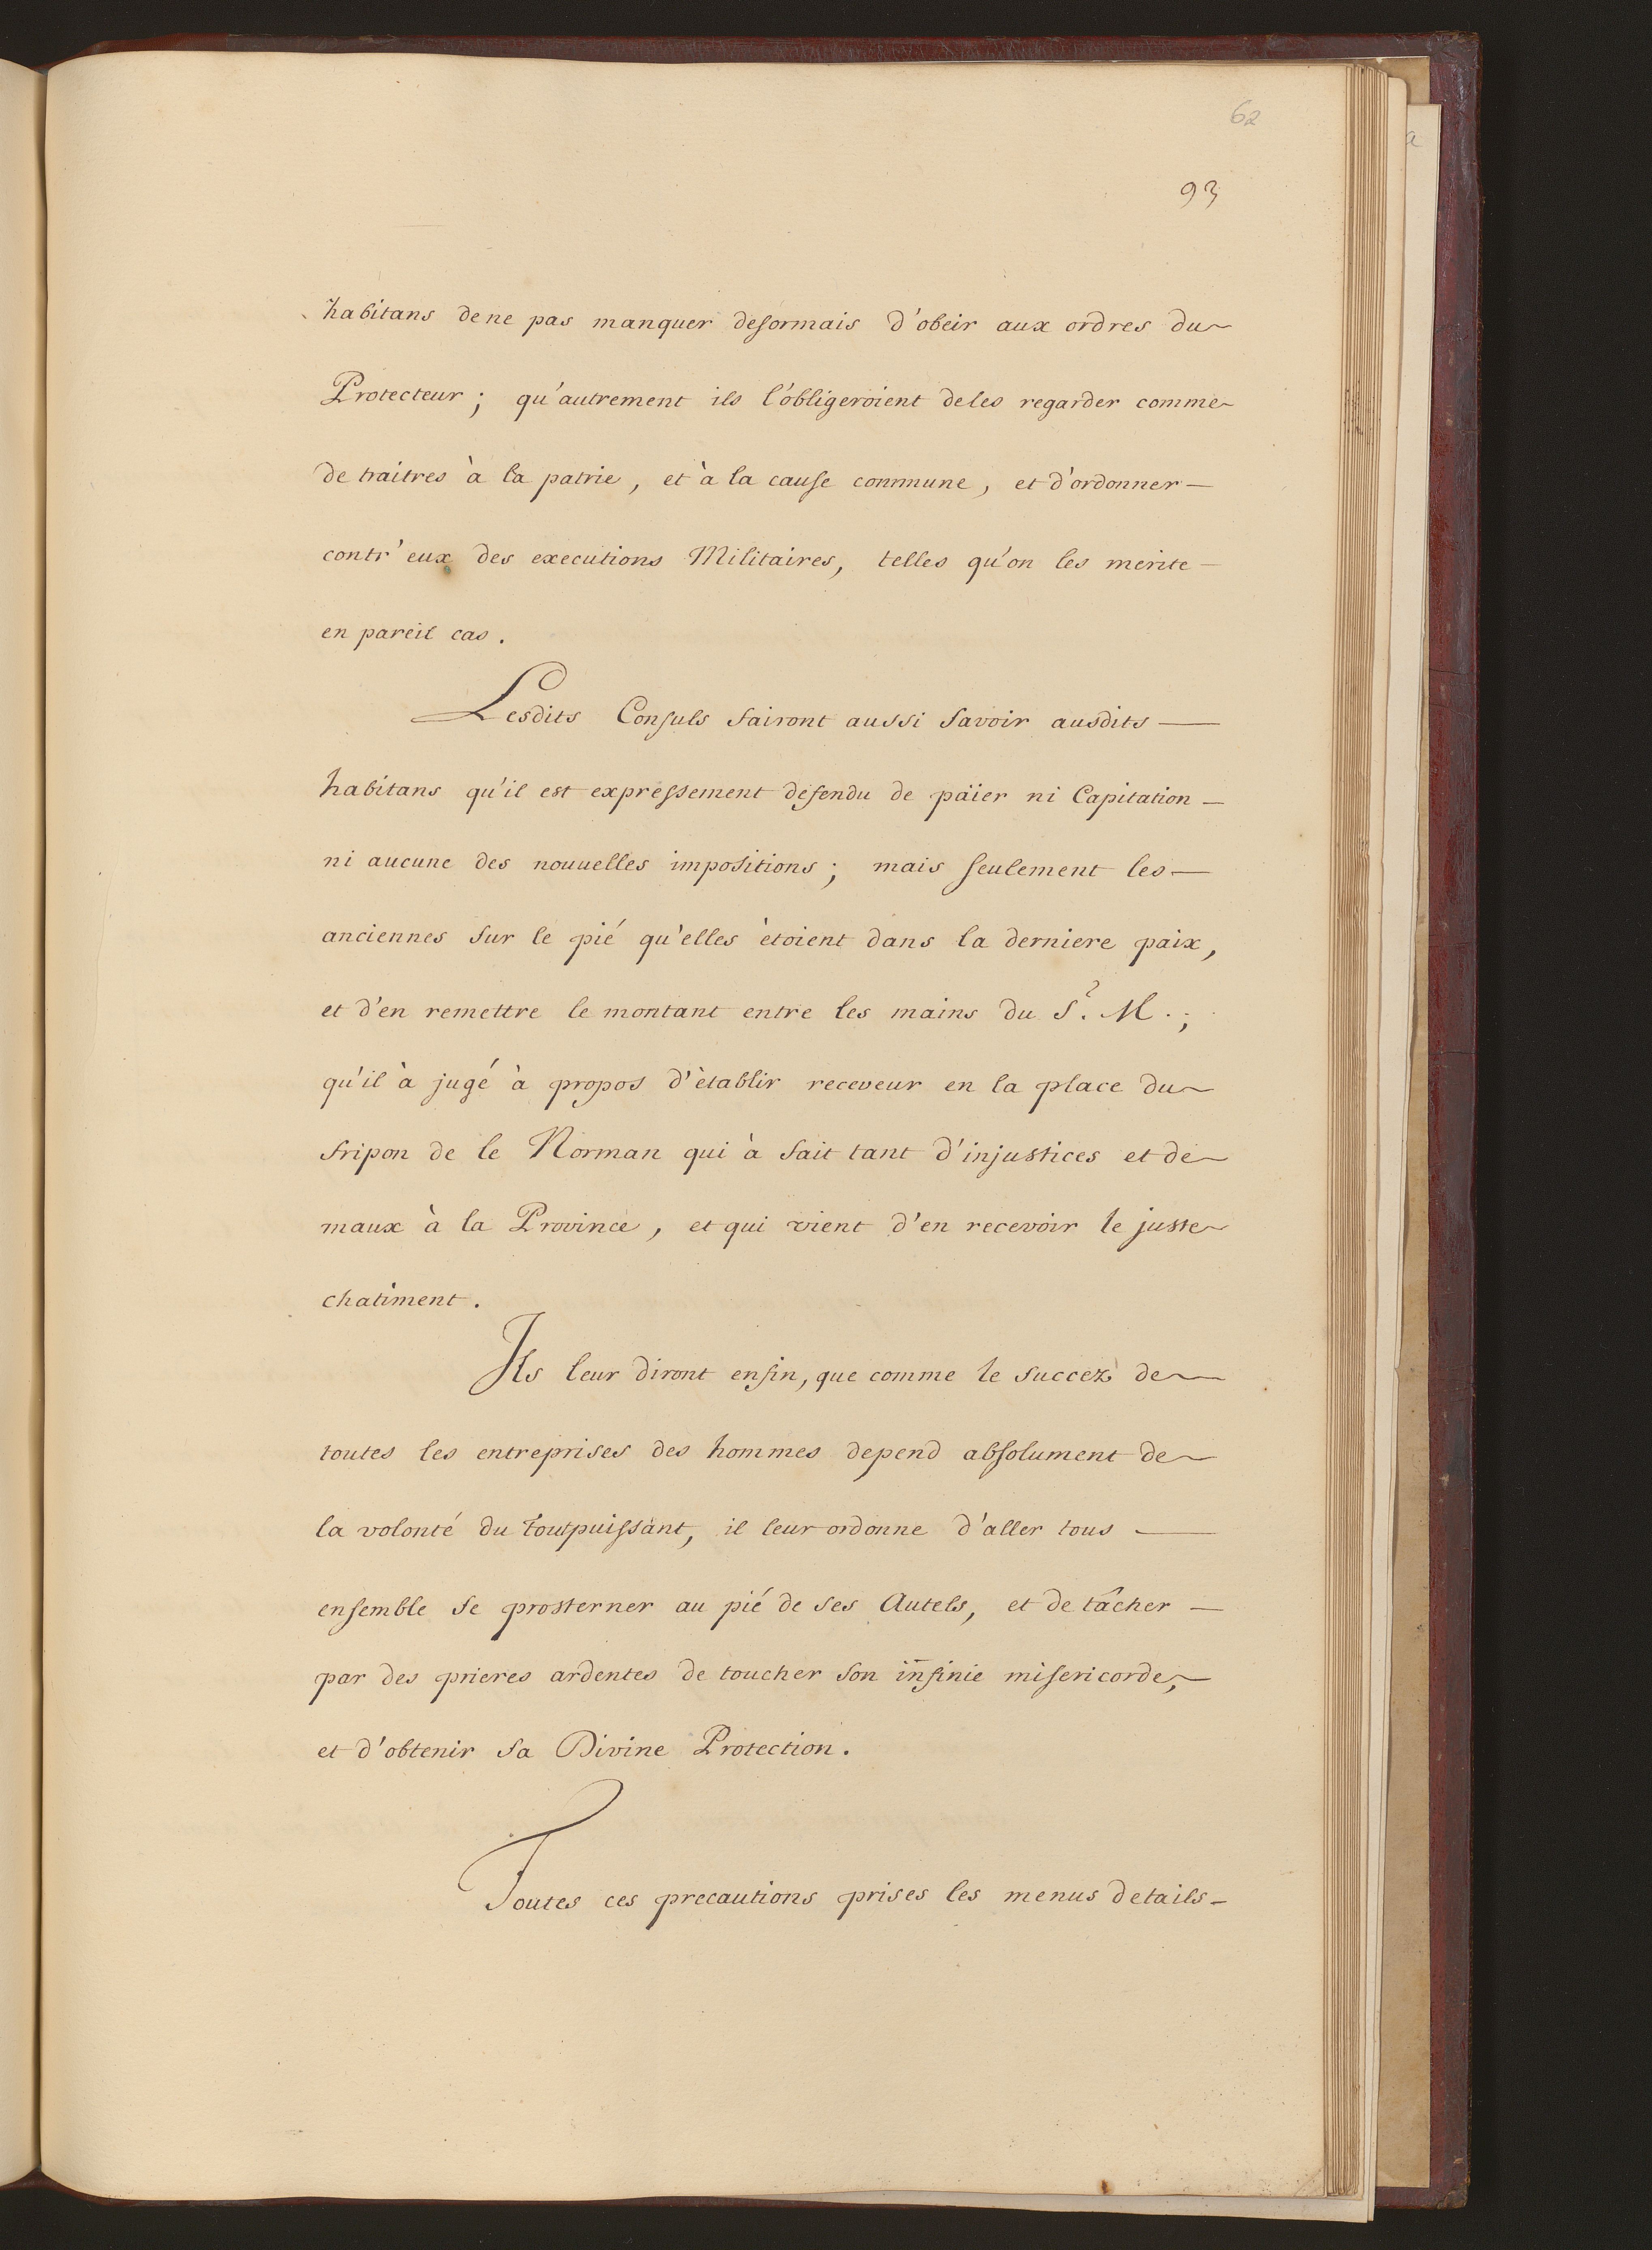 62
93
habitans de ne pas manquer desormais d'obeir aux ordres du
Protecteur ; qu'autrement ils l'obligeroient de les regarder comme
de traitres à la patrie, et à la cause commune, et d'ordonner —
contr'eux des executions Militaires, telles qu'on les merite —
en pareil cas.
Lesdits Consuls fairont aussi savoir ausdits —
habitans qu'il est expressement defendu de païer ni Capitation —
ni aucune des nouuelles impositions ; mais seulement les —
anciennes sur le pié qu'elles ètoient dans la derniere paix,
et d'en remettre le montant entre les mains du S.r M. ;
qu'il à jugé à propos d'ètablir receveur en la place du
fripon de le Norman qui à fait tant d'injustices et de
maux à la Province, et qui vient d'en recevoir le juste
chatiment.
Ils leur diront enfin, que comme le succez de
toutes les entreprises des hommes depend absolument de
la volonté du toutpuissant, il leur ordonne d'aller tous —
ensemble se prosterner au pié de ses Autels, et de tâcher —
par des prieres ardentes de toucher son infinie misericorde,
et d'obtenir sa Divine Protection.
Toutes ces precautions prises les menus details —